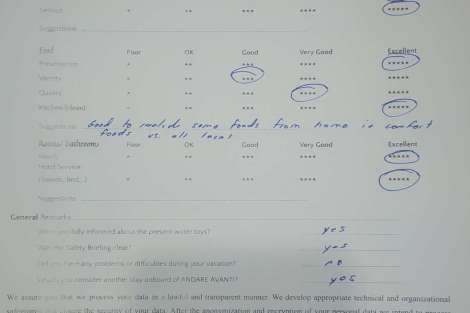 Service * ** *** **** *****
Suggestions
Food Poor OK Good Very Good Excellent
Presentation * ** *** **** *****
Variety * ** *** **** *****
Quality * ** *** **** *****
* ** *** **** *****
Suggestions Good to include some foods from home i.e comfort
foods vs. all local
Poor OK Good Very Good Excellent
* ** *** **** *****
Hotel Service
* ** *** **** *****
Suggestions
General Remarks
fully informed about the present water toys? yes
Was the Safety Briefing clear? yes
Did you face any problems or difficulties during your vacation? no
Would you consider another stay onboard of ANDARE AVANTI? yes
We assure you that we process your data in a lawful and transparent manner. We develop appropriate technical and organizational
the security of your data. After the anonymization and encryption of your personal data we intend to process